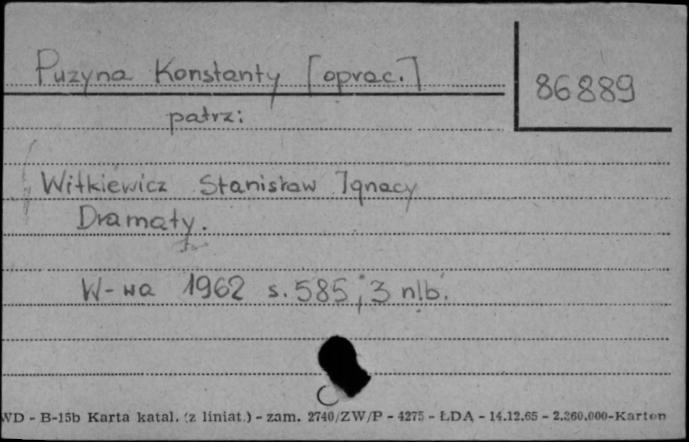 Puzyna Konstanty [oprac.]
86889
patrz:
Witkiewicz Stanisław Ignacy
Dramaty.
W-wa 1962 s. 585, 3 nlb.
WD - B-15b Karta katal. (z liniat.) - zam. 2740/ZW/P - 4275 - ŁDA - 14.12.65 - 2.260.000-Karton